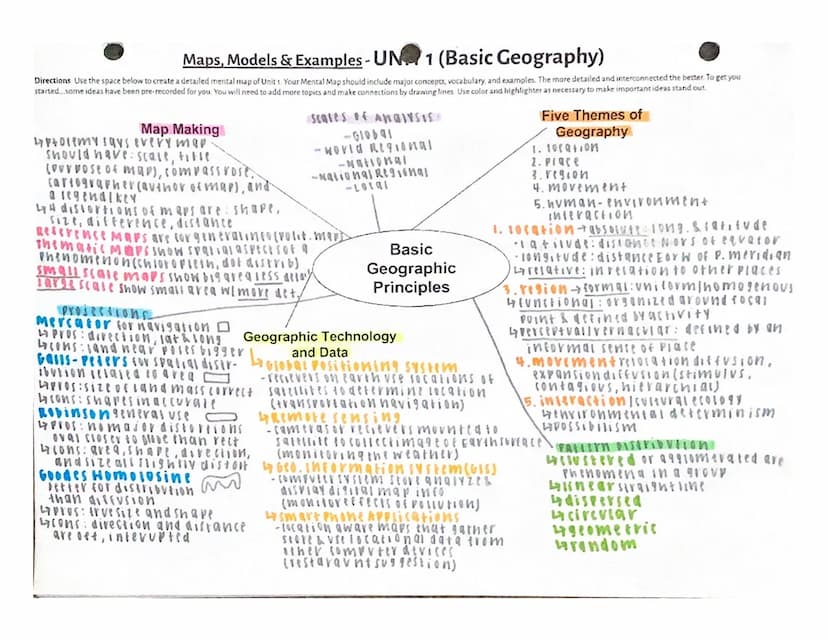 Maps, Models & Examples - UNIT 1 (Basic Geography)
Directions Use the space below to create a detailed mental map of Unit 1. Your Mental Map should include major concepts, vocabulary, and examples. The more detailed and interconnected the better. To get you
started...some ideas have been pre-recorded for you. You will need to add more topics and make connections by drawing lines. Use color and highlighter as necessary to make important ideas stand out.
Map Making
↳Ptolemy says every map
should have: scale, title
(purpose of map), compass rose,
cartographer (author of map), and
a legend/key
↳4 distortions of maps are: shape,
size, difference, distance
Reference maps are for general info (polit. map)
Thematic maps show spatial aspects of a
phenomenon (chloropleth, dot distrib)
small scale maps show big area less detail
large scale show small area w/ more det.
scales of analysis
-Global
-world Regional
-National
-National Regional
-Local
Five Themes of
Geography
1. location
2. place
3. region
4. movement
5. human-environment
interaction
Basic
Geographic
Principles
1. location → absolute: long. & latitude
·latitude: distance N or S of equator
·longitude: distance E or W of P. meridian
↳relative: in relation to other places
3. region → formal: uniform/homogenous
↳functional: organized around focal
point & defined by activity
↳perceptual/vernacular: defined by an
informal sense of place
4. movement relocation diffusion,
expansion diffusion (stimulus,
contagious, hierarchial)
5. interaction/cultural ecology
↳environmental determinism
↳possibilism
projections
Mercator for navigation
↳pros: direction, lat & long
↳cons: land near poles bigger
Galls-Peters for spatial distr-
ibution related to area
↳pros: size of land mass correct
↳cons: shapes inaccurate
Robinson general use
↳pros: no major distortions
oval closer to globe than rect
↳cons: area, shape, direction,
and size all slightly distort
Goodes Homolosine
better for distribution
than diffusion
↳pros: true size and shape
↳cons: direction and distance
are off, interupted
Geographic Technology
and Data
↳Global Positioning System
-recievers on earth use locations of
satellites to determine location
(transportation navigation)
↳Remote sensing
-camera or recievers mounted to
satellite to collect image of earth surface
(monitoring the weather)
↳Geo. Information System (GIS)
-computer system store analyze &
display digital map info
(monitor effects of pollution)
↳Smart Phone Applications
-location aware maps that gather
store & use locational data from
other computer devices
(restaraunt suggestion)
pattern distribution
↳clustered or agglomerated are
phenomena in a group
↳linear straight line
↳dispersed
↳circular
↳geometric
↳random